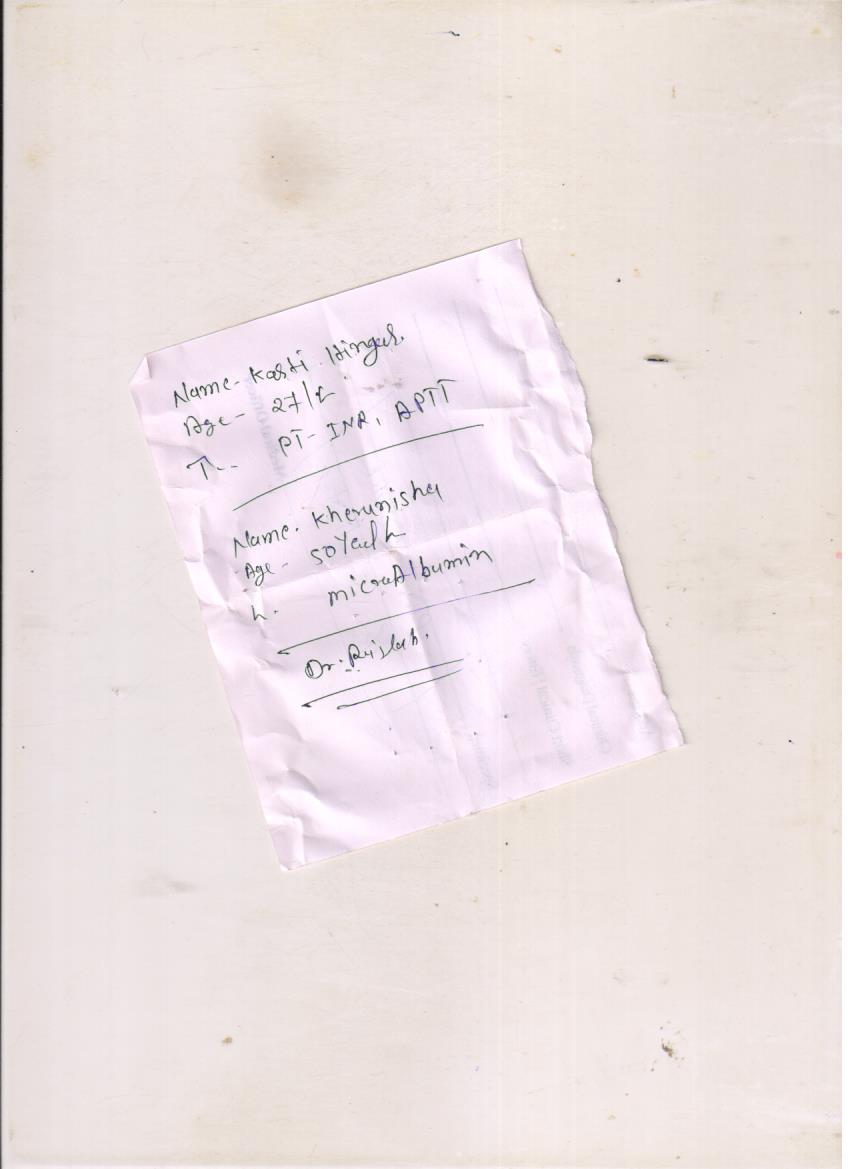 Name- Kasti Hingul.
Age- 27/
T--
PT- INR, APTT
Name. Kherunisha
Age- 50
MicroAlbumin
Dr.